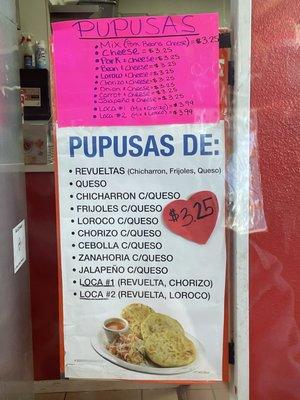 PUPUSAS
• Mix (Pork Beans Cheese) = $3.25
• Cheese = $3.25
• Pork & Cheese = $3.25
• Bean & Cheese = $3.25
• Loroco & Cheese = $3.25
• Chorizo & Cheese = $3.25
• Onion & Cheese = $3.25
• Carrot & Cheese = $3.25
• Jalapeño & Cheese = $3.25
• Loca #1 (Mix & Chorizo) = $3.99
• Loca #2 (Mix & Loroco) = $3.99
PUPUSAS DE:
• REVUELTAS (Chicharron, Frijoles, Queso)
• QUESO
• CHICHARRON C/QUESO
• FRIJOLES C/QUESO
• LOROCO C/QUESO
• CHORIZO C/QUESO
• CEBOLLA C/QUESO
• ZANAHORIA C/QUESO
• JALAPEÑO C/QUESO
• LOCA #1 (REVUELTA, CHORIZO)
• LOCA #2 (REVUELTA, LOROCO)
$3.25